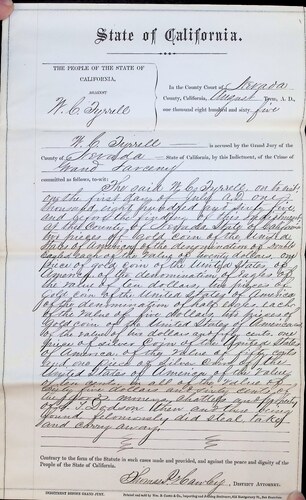 State of California.
THE PEOPLE OF THE STATE OF
CALIFORNIA,
AGAINST
W. C. Tyrrell
In the County Court of Nevada
County, California, August Term, A. D.,
one thousand eight hundred and sixty five
W. C. Tyrrell is accused by the Grand Jury of the
County of Nevada State of California, by this Indictment, of the Crime of
Grand Larceny
committed as follows, to-wit:
The said W. C. Tyrrell, on to wit,
on the first day of July A.D. one
thousand eight hundred and sixty five
and before the finding of this Indictment
at the County of Nevada State of California
pieces of Gold Coin of the United
States of America of the denomination of double
eagles each of the value of twenty dollars, one
piece of gold coin of the United States of
America of the denomination of eagle of
the value of ten dollars, two pieces of
gold coin of the United States of America
of the denomination of half eagle each
of the value of five dollars, two pieces of
Gold coin of the United States of America
of the value of two dollars and fifty cents, one
piece of silver Coin of the United States
of America of the value of fifty cents
and one piece of silver Coin of the
United States of America of the value
in all of the value of
dollars and
cents of the
money, chattels and property
of Dodson then and there being
found feloniously did steal, take
and carry away
Contrary to the form of the Statute in such cases made and provided, and against the peace and dignity of the
People of the State of California.
Thomas P Hawley DISTRICT ATTORNEY.
INDICTMENT BEFORE GRAND JURY.